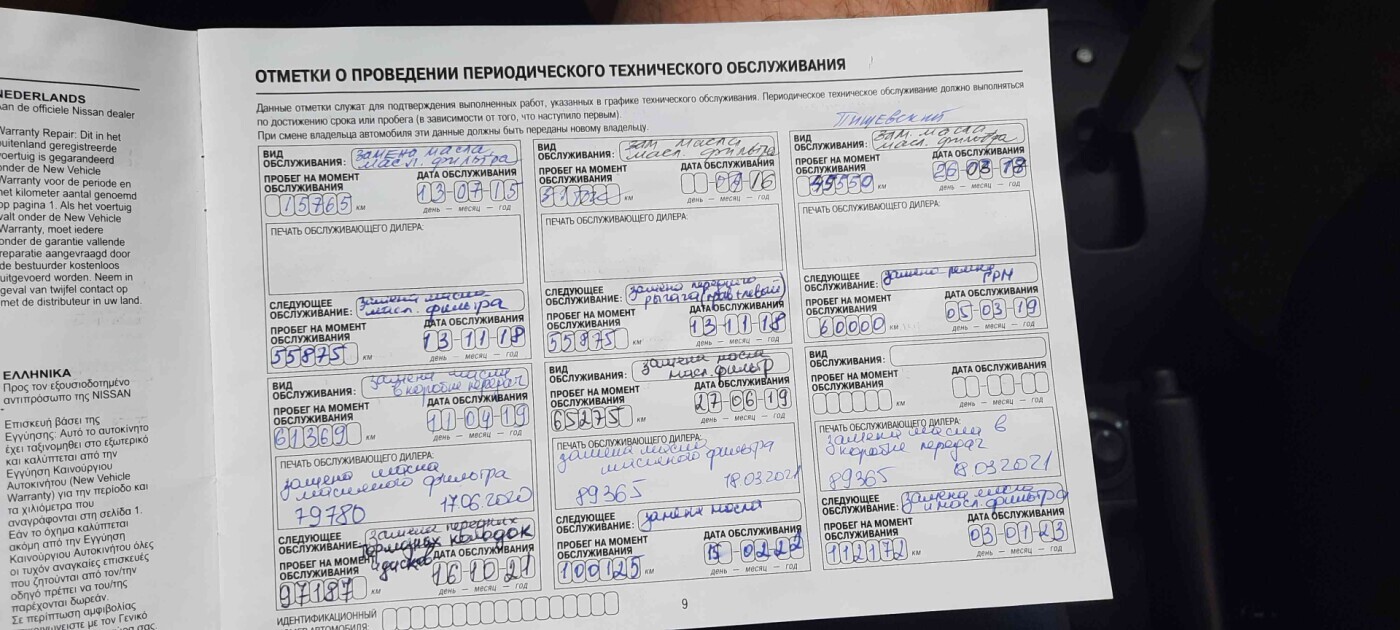 NEDERLANDS
Aan de officiele Nissan dealer
Warranty Repair: Dit in het
buitenland geregistreerde
voertuig is gegarandeerd
onder de New Vehicle
Warranty voor de periode en
het kilometer aantal genoemd
op pagina 1. Als het voertuig
valt onder de New Vehicle
Warranty, moet iedere
onder de garantie vallende
reparatie aangevraagd door
de bestuurder kosteloos
uitgevoerd worden. Neem in
geval van twijfel contact op
met de distributeur in uw land.
ΕΛΛΗΝΙΚΑ
Προς τον εξουσιοδοτημένο
αντιπρόσωπο της NISSAN
Επισκευή βάσει της
Εγγύησης: Αυτό το αυτοκίνητο
έχει ταξινομηθεί στο εξωτερικό
και καλύπτεται από την
Εγγύηση Καινούργιου
Αυτοκινήτου (New Vehicle
Warranty) για την περίοδο και
τα χιλιόμετρα που
αναγράφονται στη σελίδα 1.
Εάν το όχημα καλύπτεται
ακόμη από την Εγγύηση
Καινούργιου Αυτοκινήτου όλες
οι τυχόν αναγκαίες επισκευές
που ζητούνται από τον/την
οδηγό πρέπει να του/της
παρέχονται δωρεάν.
Σε περίπτωση αμφιβολίας
ОТМЕТКИ О ПРОВЕДЕНИИ ПЕРИОДИЧЕСКОГО ТЕХНИЧЕСКОГО ОБСЛУЖИВАНИЯ
Данные отметки служат для подтверждения выполненных работ, указанных в графике технического обслуживания. Периодическое техническое обслуживание должно выполняться
по достижению срока или пробега (в зависимости от того, что наступило первым).
При смене владельца автомобиля эти данные должны быть переданы новому владельцу.
ВИД
ОБСЛУЖИВАНИЯ: замена масла
масл. фильтра
ПРОБЕГ НА МОМЕНТ ДАТА ОБСЛУЖИВАНИЯ
ОБСЛУЖИВАНИЯ
15765 км 13-07-15
день — месяц — год
ПЕЧАТЬ ОБСЛУЖИВАЮЩЕГО ДИЛЕРА:
СЛЕДУЮЩЕЕ
ОБСЛУЖИВАНИЕ: замена масла
масл. фильтра
ПРОБЕГ НА МОМЕНТ ДАТА ОБСЛУЖИВАНИЯ
ОБСЛУЖИВАНИЯ
55875 км 13-11-18
день — месяц — год
ВИД
ОБСЛУЖИВАНИЯ: зам. масла
масл. фильтра
ПРОБЕГ НА МОМЕНТ ДАТА ОБСЛУЖИВАНИЯ
ОБСЛУЖИВАНИЯ
км 16
день — месяц — год
ПЕЧАТЬ ОБСЛУЖИВАЮЩЕГО ДИЛЕРА:
СЛЕДУЮЩЕЕ
ОБСЛУЖИВАНИЕ: замена переднего
рычага (прав + левый)
ПРОБЕГ НА МОМЕНТ ДАТА ОБСЛУЖИВАНИЯ
ОБСЛУЖИВАНИЯ
55875 км 13-11-18
день — месяц — год
Пищевский
ВИД
ОБСЛУЖИВАНИЯ: зам. масла
масл. фильтра
ПРОБЕГ НА МОМЕНТ ДАТА ОБСЛУЖИВАНИЯ
ОБСЛУЖИВАНИЯ
км 26-03-18
день — месяц — год
ПЕЧАТЬ ОБСЛУЖИВАЮЩЕГО ДИЛЕРА:
СЛЕДУЮЩЕЕ
ОБСЛУЖИВАНИЕ: замена ремня
ГРМ
ПРОБЕГ НА МОМЕНТ ДАТА ОБСЛУЖИВАНИЯ
ОБСЛУЖИВАНИЯ
60000 км 05-03-19
день — месяц — год
ВИД
ОБСЛУЖИВАНИЯ: замена масла
в коробке передач
ПРОБЕГ НА МОМЕНТ ДАТА ОБСЛУЖИВАНИЯ
ОБСЛУЖИВАНИЯ
61369 км 11-04-19
день — месяц — год
ПЕЧАТЬ ОБСЛУЖИВАЮЩЕГО ДИЛЕРА:
замена масла
масляного фильтра
79780 17.06.2020
СЛЕДУЮЩЕЕ
ОБСЛУЖИВАНИЕ: замена передних
тормозных колодок
+дисков
ПРОБЕГ НА МОМЕНТ ДАТА ОБСЛУЖИВАНИЯ
ОБСЛУЖИВАНИЯ
97187 км 16-10-21
день — месяц — год
ВИД
ОБСЛУЖИВАНИЯ: замена масла
масл. фильтр
ПРОБЕГ НА МОМЕНТ ДАТА ОБСЛУЖИВАНИЯ
ОБСЛУЖИВАНИЯ
65275 км 27-06-19
день — месяц — год
ПЕЧАТЬ ОБСЛУЖИВАЮЩЕГО ДИЛЕРА:
замена масла
масляного фильтра
89365 18.03.2021
СЛЕДУЮЩЕЕ
ОБСЛУЖИВАНИЕ: замена масла
ПРОБЕГ НА МОМЕНТ ДАТА ОБСЛУЖИВАНИЯ
ОБСЛУЖИВАНИЯ
100125 км 15-02-22
день — месяц — год
ВИД
ОБСЛУЖИВАНИЯ:
ПРОБЕГ НА МОМЕНТ ДАТА ОБСЛУЖИВАНИЯ
ОБСЛУЖИВАНИЯ
км
день — месяц — год
ПЕЧАТЬ ОБСЛУЖИВАЮЩЕГО ДИЛЕРА:
замена масла в
коробке передач
89365 18.03.2021
СЛЕДУЮЩЕЕ
ОБСЛУЖИВАНИЕ: замена масла
и масл. фильтра
ПРОБЕГ НА МОМЕНТ ДАТА ОБСЛУЖИВАНИЯ
ОБСЛУЖИВАНИЯ
112172 км 03-01-23
день — месяц — год
ИДЕНТИФИКАЦИОННЫЙ
АВТОМОБИЛЯ:
9